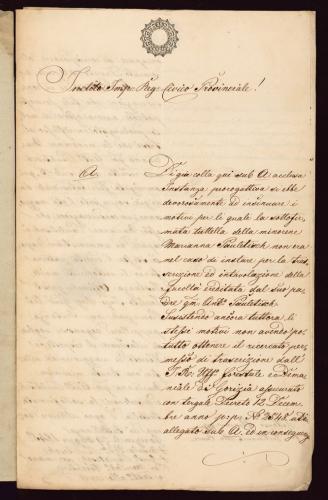 Inclito Imp: Reg: Civico Provinciale!
A.
Di già colla qui sub A acclusa
Instanza prorogattiva si ebbe
devorosamente ad insinuare i
motivi per le quale la sottofir-
mata tuttella della minorene
Marianna Pauletisch non era
nel caso di instare per la tras-
cruzione ed intavolazione della
facoltà ereditata dal suo pa-
dre qm Antº Pauletisch.
Susistendo ancora tuttora li
stessi motivi non avendo po-
tutto ottenere il ricercato per-
messo di trascrizione dall'
I. R. Uffº forestale e Dima-
niale di Gorizia assecurato
con Decreto 12 Decem-
bre anno p:p: Nº 2648
allegato sub A. ed in conseguenz